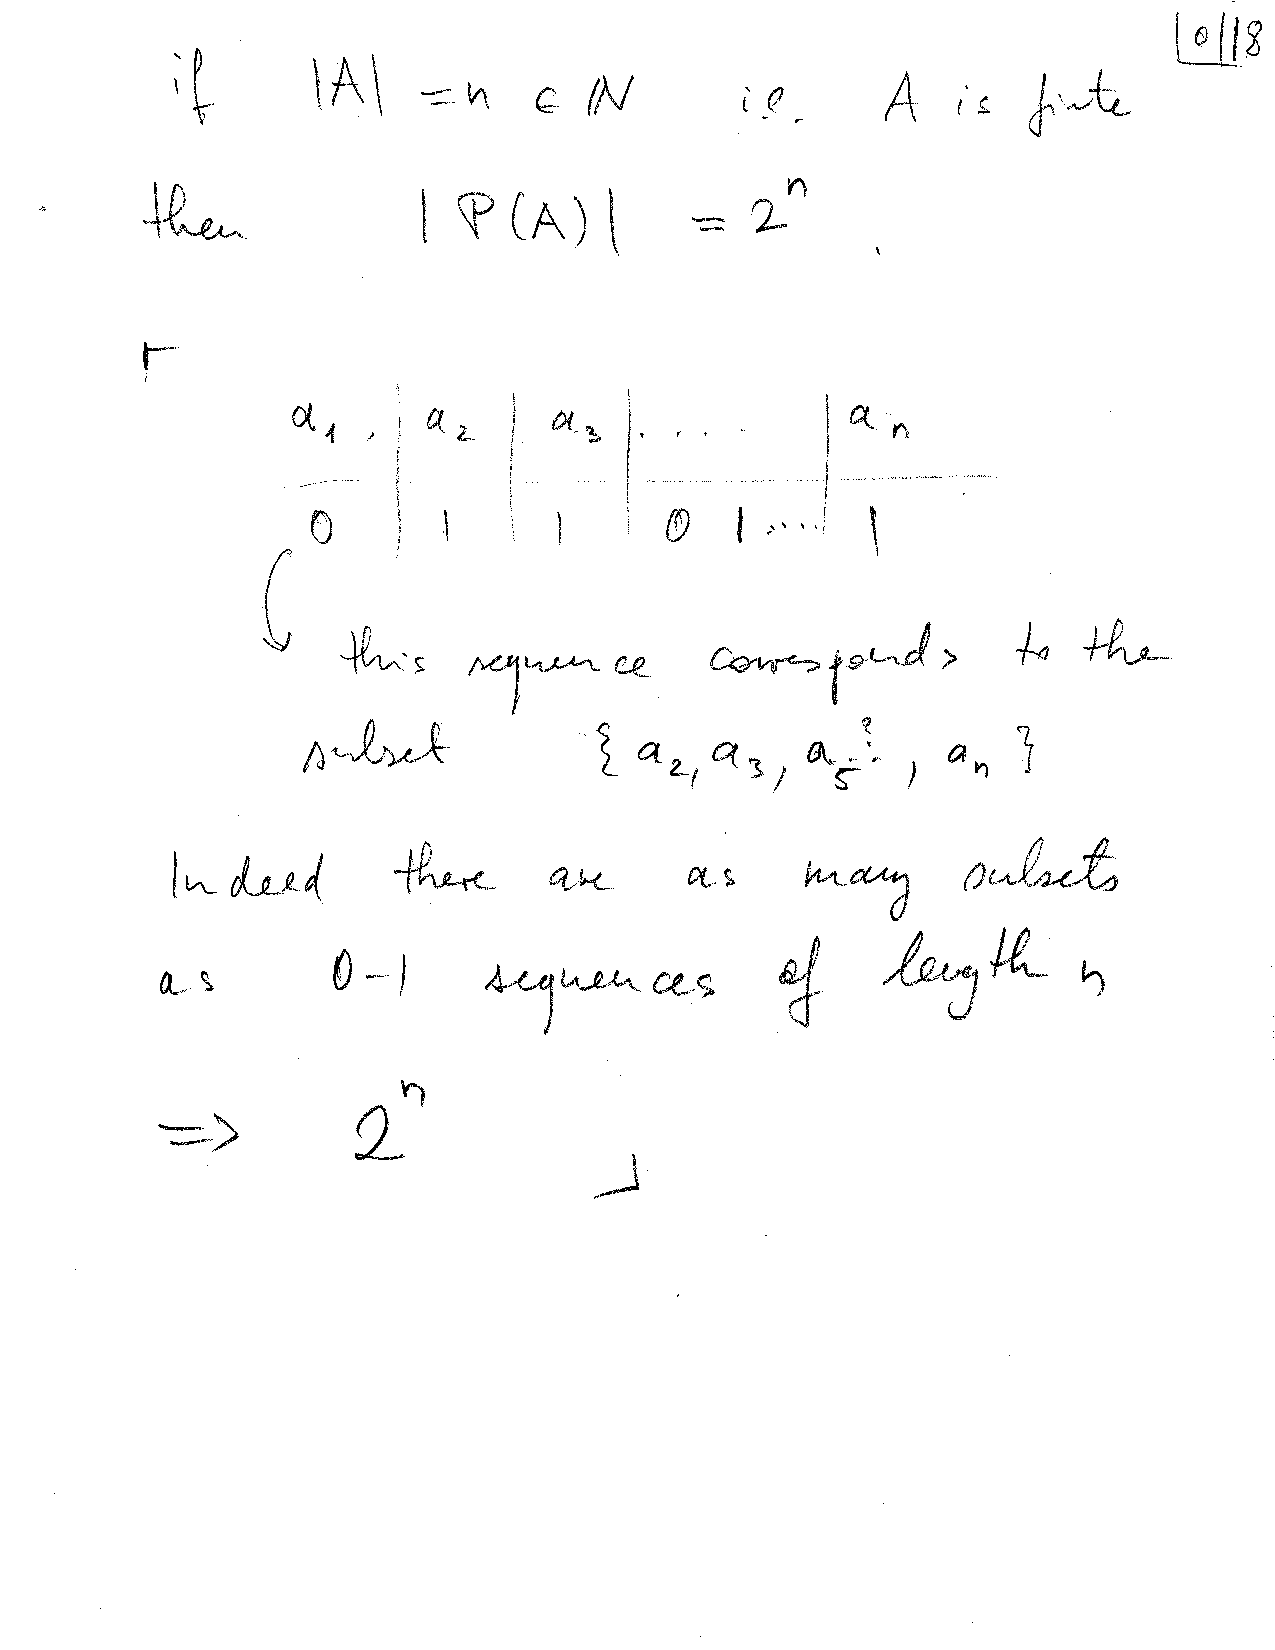 0/18
if |A| = n ∈ ℕ i.e. A is finite
then |P(A)| = 2ⁿ.
a₁, | a₂ | a₃ | .... | aₙ
0 | 1 | 1 | 0 1 .... | 1
this sequence corresponds to the
subset {a₂, a₃, a₅?.., aₙ}
Indeed there are as many subsets
as 0-1 sequences of length n
=> 2ⁿ